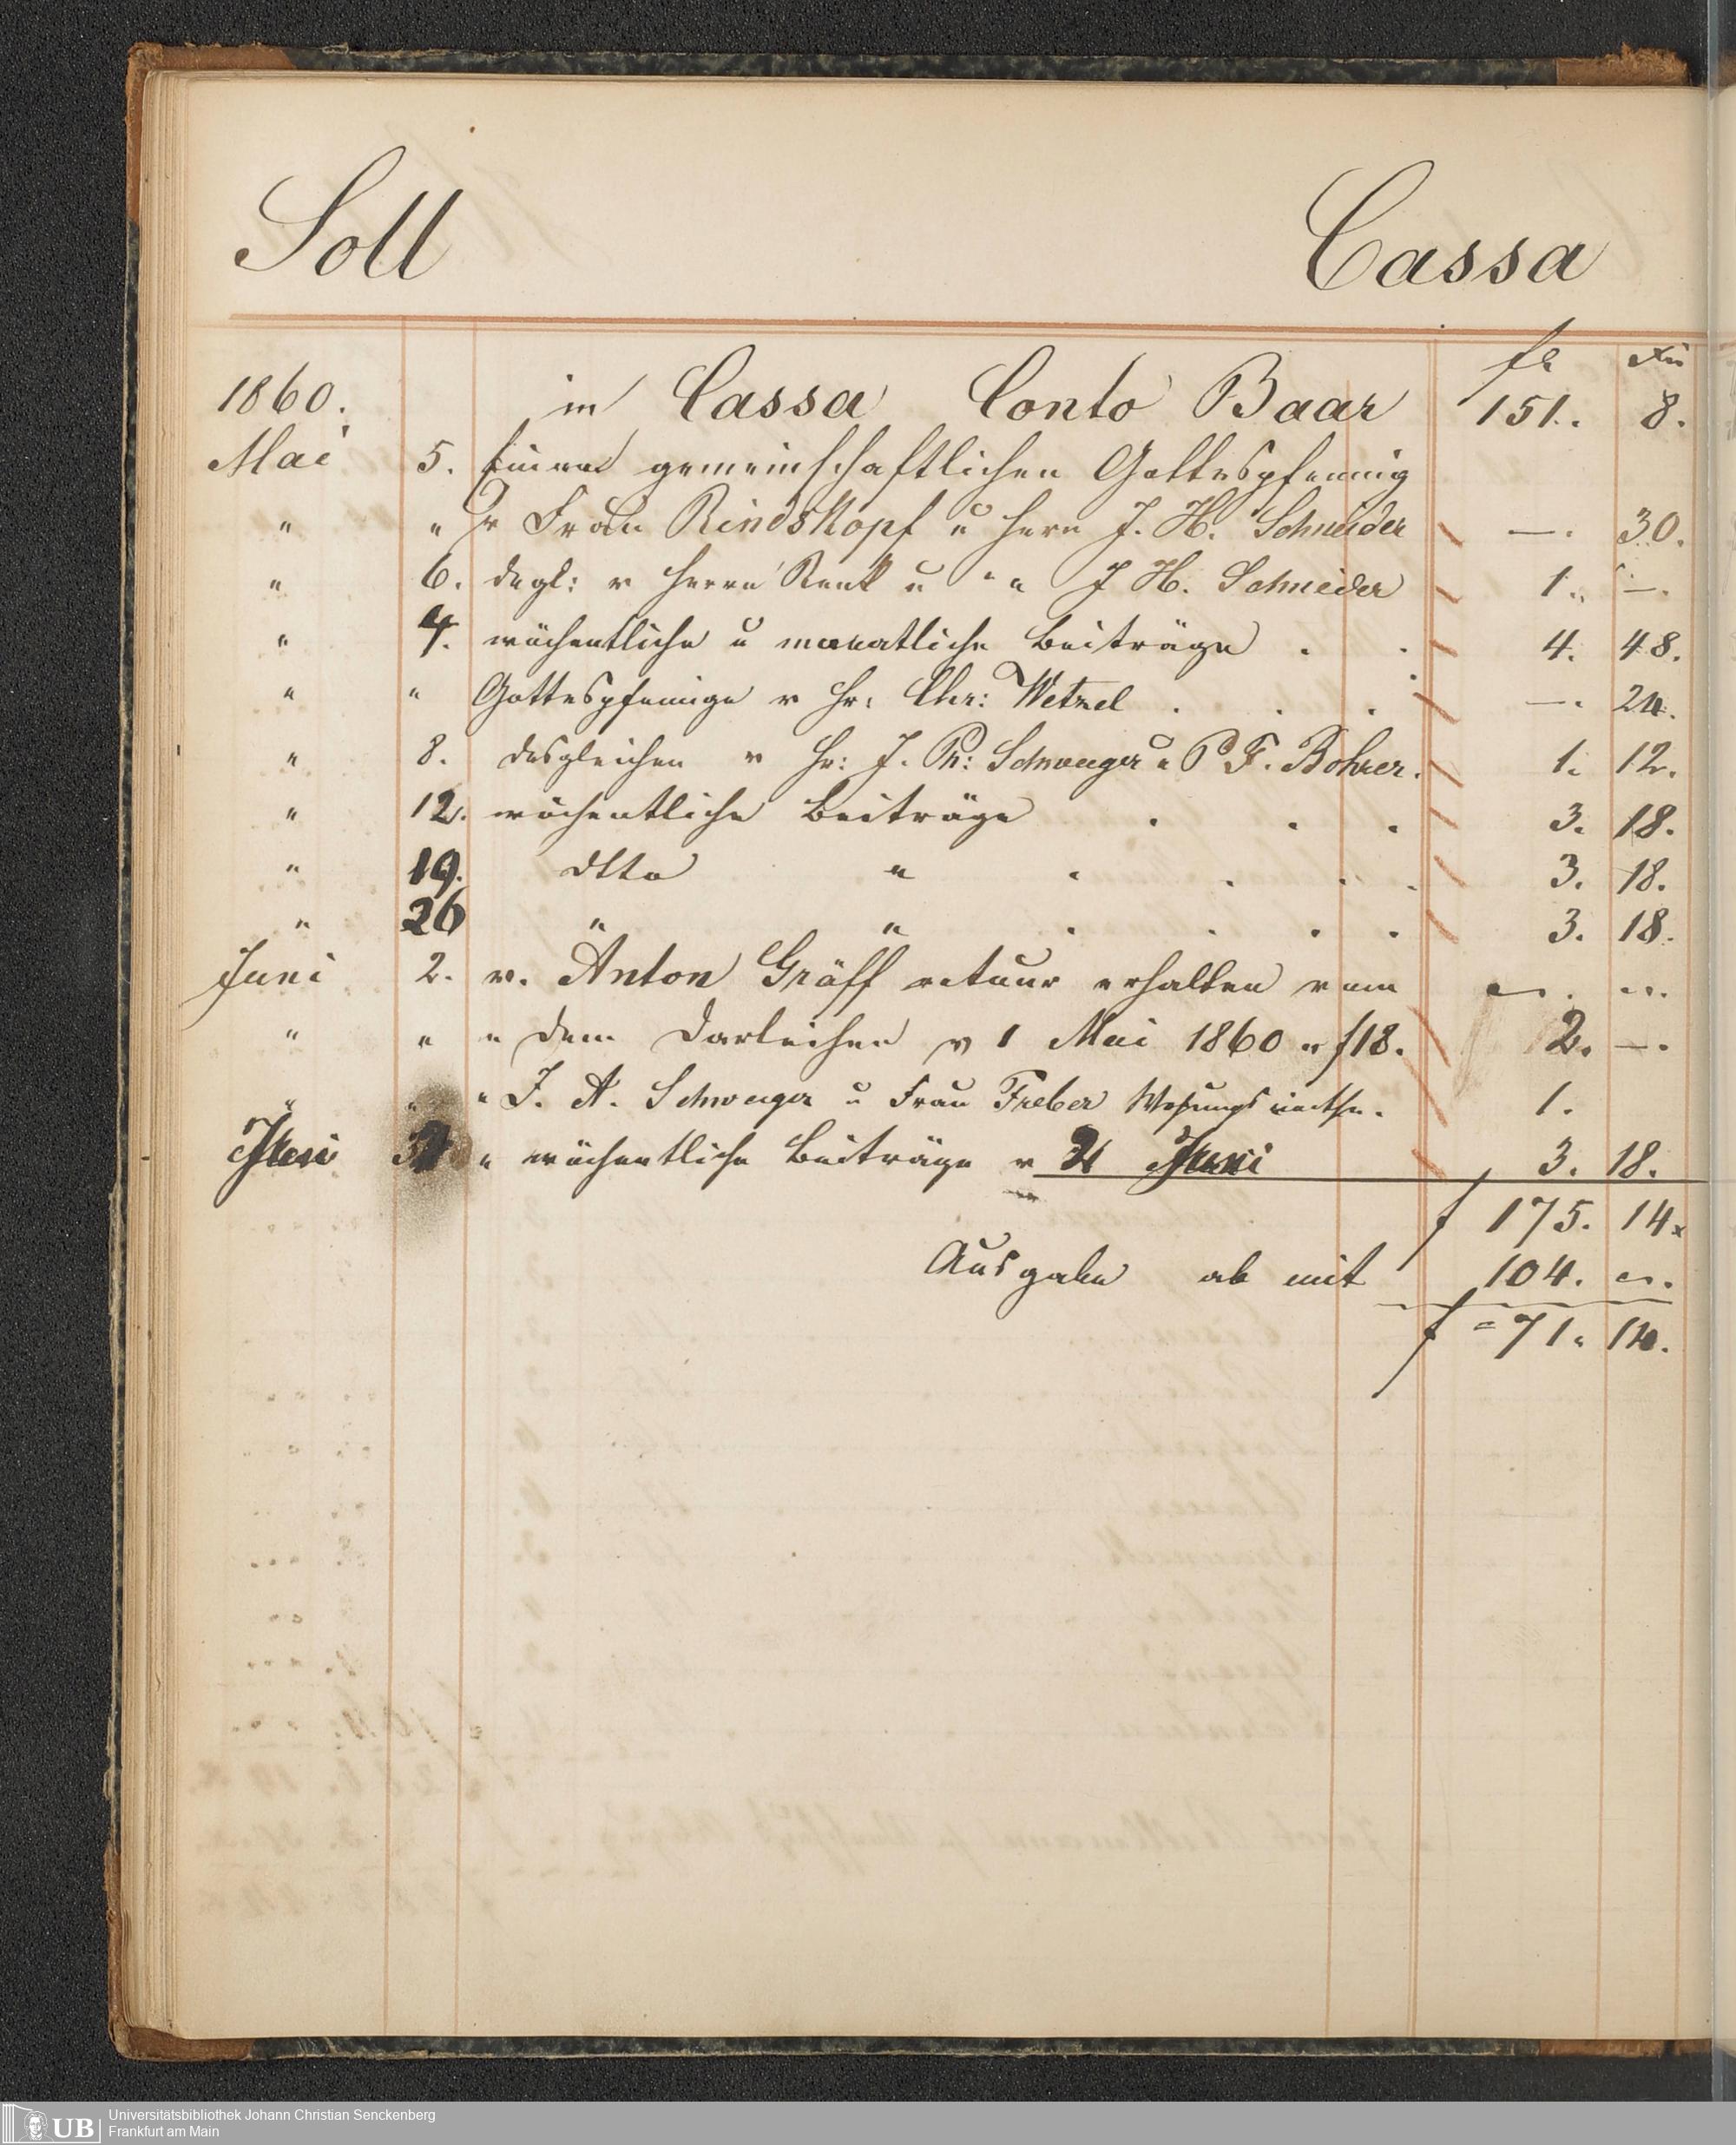 Soll Cassa
fl xr
1860. in Cassa Conto Baar 151. 8.
Mai 5. einen gemeinschaftlichen Gottespfennig
" " v Frau Rindskopf u Herrn J. H. Schneider —. 30.
" 6. degl: v Herrn Renk u " " J H. Schneider 1. —.
" 4. wöchentliche u monatliche Beiträge . . 4. 48.
" " Gottespfennige v Hr: Chr: Wetzel . . . —. 24.
" 8. desgleichen v Hr: J. Ph: Schweiger u P F. Bohrer. 1. 12.
" 12. wöchentliche Beiträge . . . 3. 18.
" 19. dtto " . . . . 3. 18.
" 26 " " . . . . 3. 18.
Juni 2. v. Anton Gräff retour erhalten vom
" " " dem Darleihen v 1 Mai 1860 " f 18. 2. —.
" " " J. A. Schweiger u Frau Freber 1.
Juni " wöchentliche Beiträge v 2 Juni 3. 18.
f 175. 14x
Ausgabe ab mit 104. —.
f = 71. 14.
UB Universitätsbibliothek Johann Christian Senckenberg
Frankfurt am Main